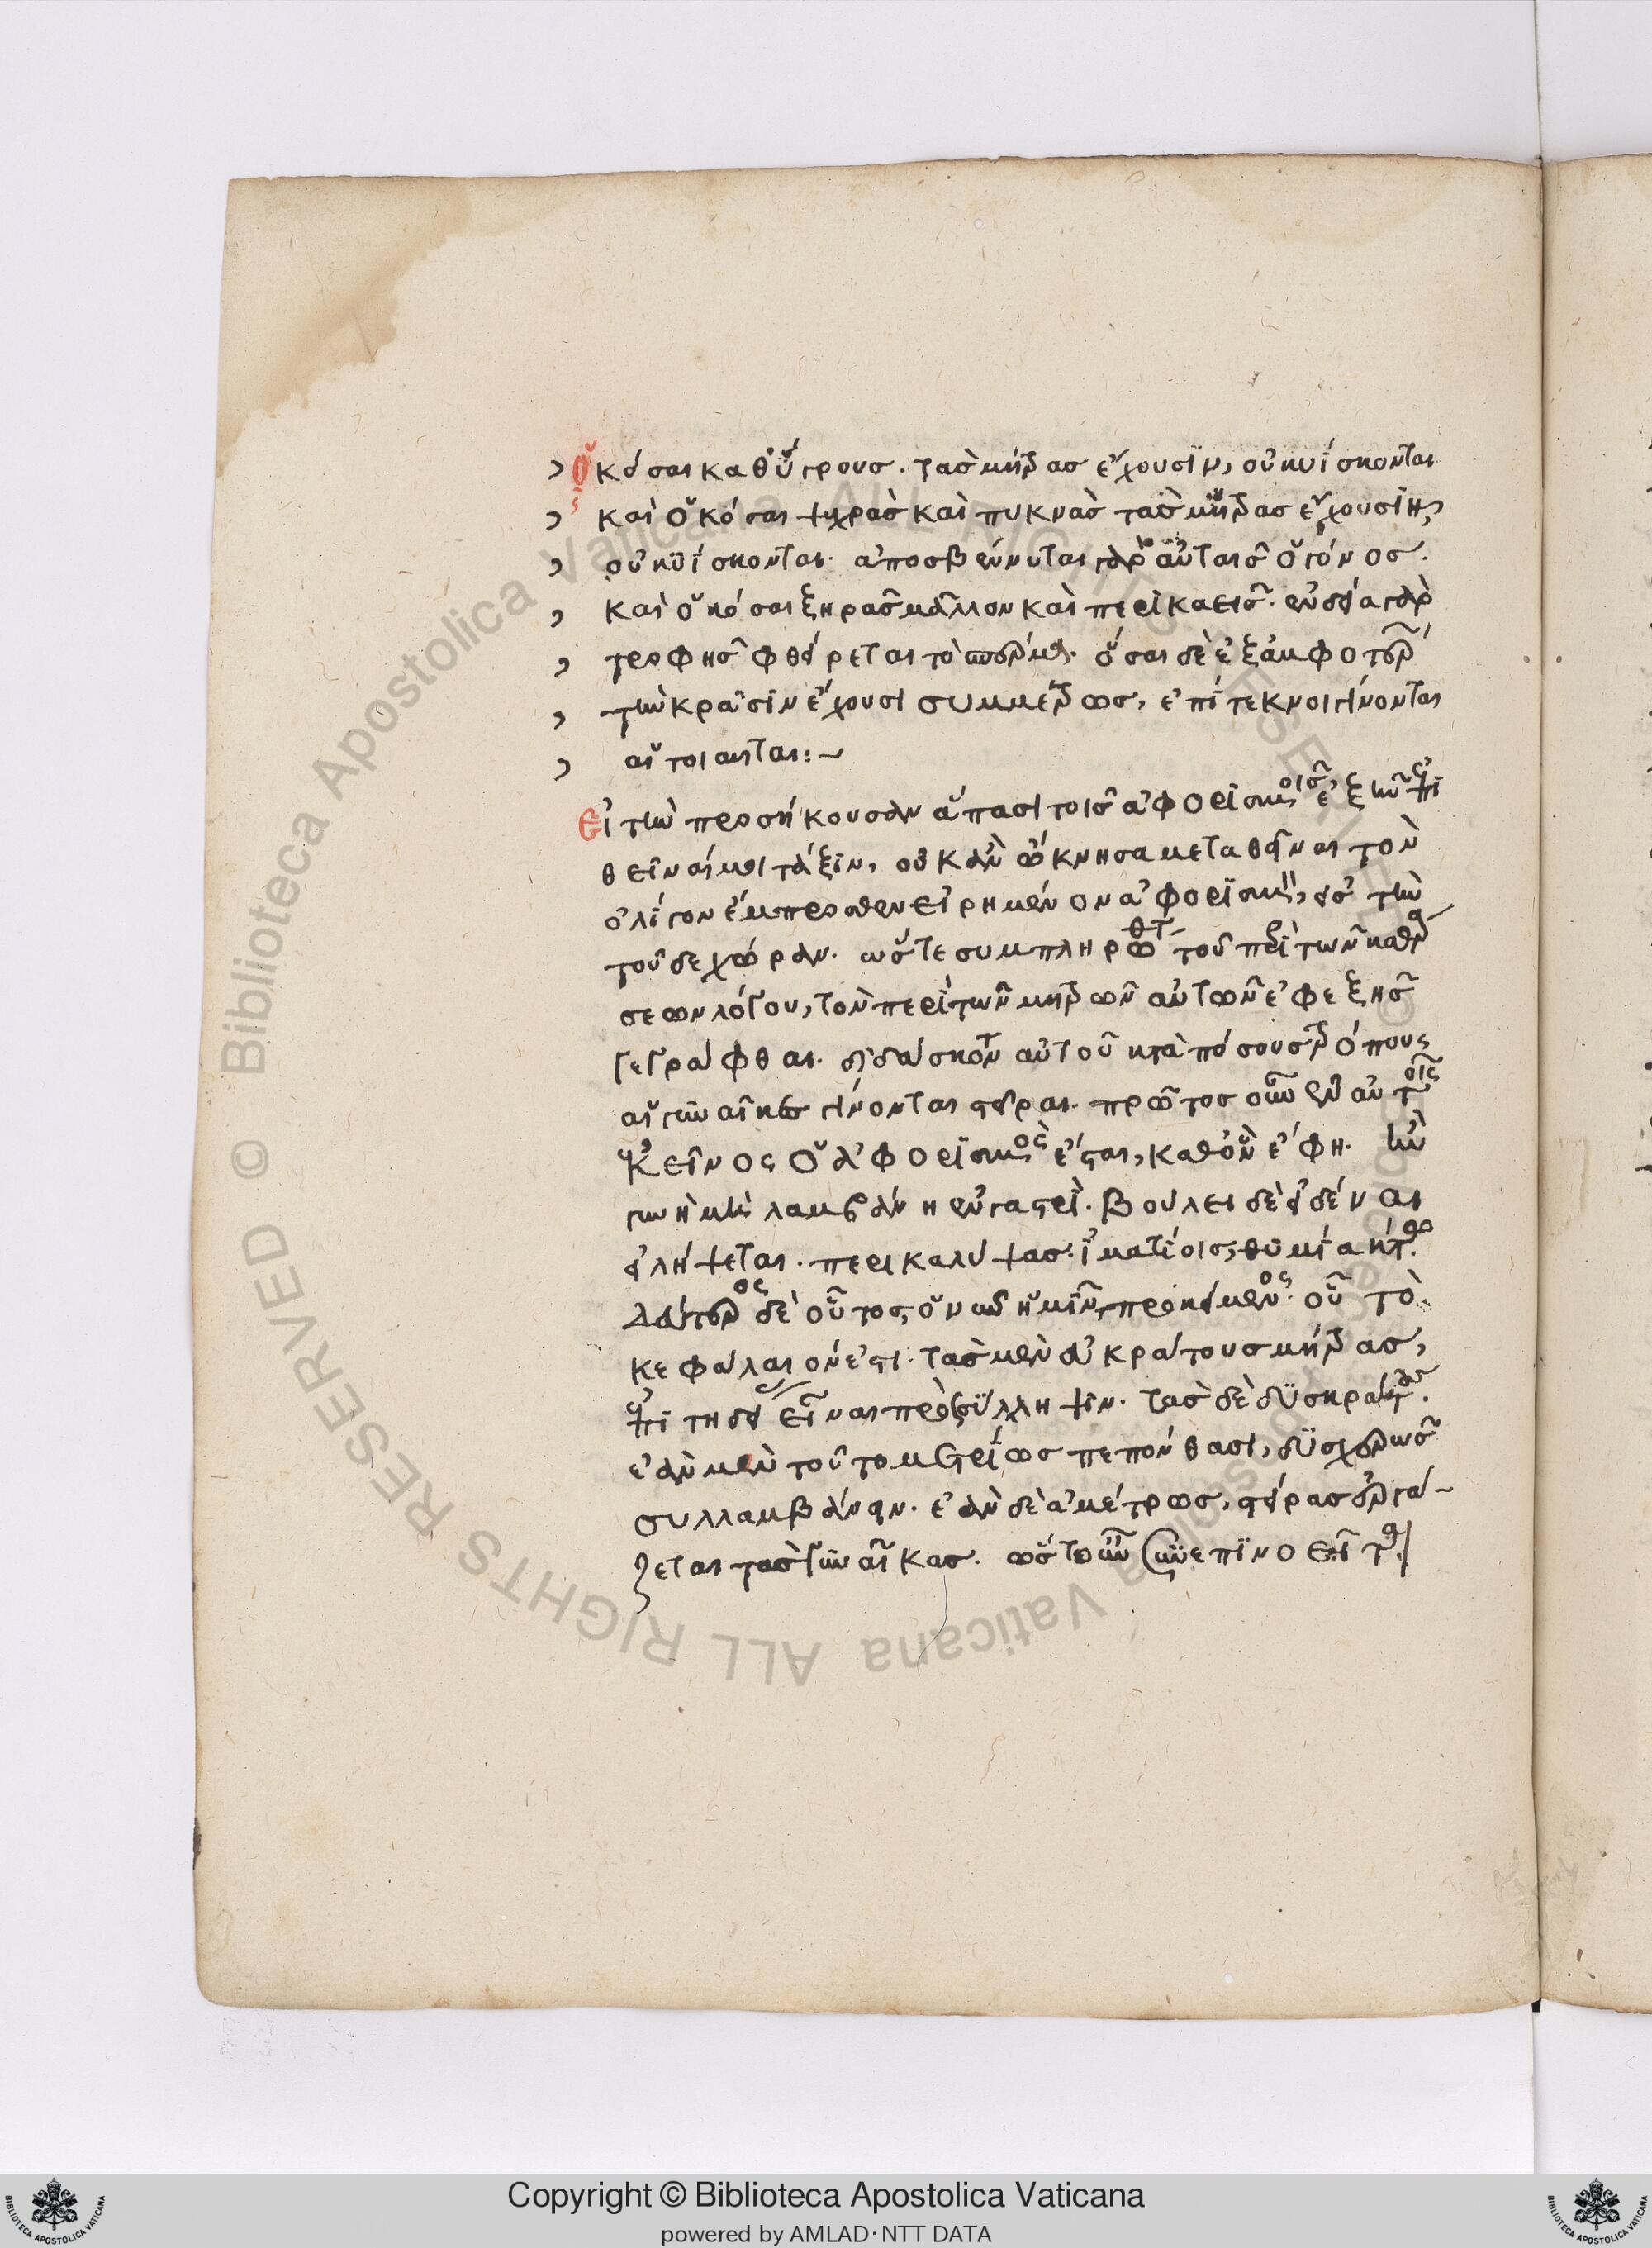 Ὁκόσαι καθύγρους. τὰς μήτρας ἔχουσιν, οὐ κυΐσκονται
καὶ ὁκόσαι ψυχρὰς καὶ πυκνὰς τὰς μήτρας ἔχουσιν,
οὐ κυΐσκονται. ἀποσβέννυται γὰρ αὐταῖς ὁ γόνος.
καὶ ὁκόσαι ξηρὰς μᾶλλον καὶ περικαεῖς. ἐνδείᾳ γὰρ
τροφῆς φθείρεται τὸ σπέρμα. ὅσαι δὲ ἐξ ἀμφοτέρων
τὴν κρᾶσιν ἔχουσι συμμέτρως, ἐπίτεκνοι γίνονται
αἱ τοιαῦται:~
Εἰ τὴν προσήκουσαν ἅπασι τοῖς ἀφορισμοῖς, ἐξῆν ἐπι
θεῖναί μοι τάξιν, οὐκ ἂν ὤκνησα μεταθεῖναι τὸν
ὀλίγον ἔμπροσθεν εἰρημένον ἀφορισμὸν, εἰς τὴν
τοῦδε χώραν. ὥστε συμπληρωθέντος τοῦ περὶ τῶν καθάρ
σεων λόγου, τὸν περὶ τῶν μητρῶν αὐτῶν ἐφεξῆς
γεγράφθαι. διδάσκοντος αὐτοῦ κατὰ πόσους τρόπους
αἱ γυναῖκες γίνονται στεῖραι. πρῶτος οὖν ἐν αὐτοῖς
ἐκεῖνος ὁ ἀφορισμὸς ἔσται, καθ' ὃν ἔφη. ἢν
γυνὴ μὴ λαμβάνῃ ἐν γαστρὶ. βούλει δὲ εἰδέναι
εἰ λήψεται. περικαλύψας ἱματίοις, θυμία κάτω.
δεύτερος δὲ οὗτος, ὁ νῦν ἡμῖν προκείμενος. οὗ τὸ
κεφάλαιόν ἐστι. τὰς μὲν εὐκράτους μήτρας,
ἐπιτηδείους εἶναι πρὸς σύλληψιν. τὰς δὲ δυσκράτους.
ἐὰν μὲν τοῦτο μετρίως πεπόνθασι, δυσχερῶς
συλλαμβάνειν. ἐὰν δὲ ἀμέτρως, στείρας ἐργά-
ζεται τὰς γυναῖκας. ὥστ' οὖν συνεπινοεῖται